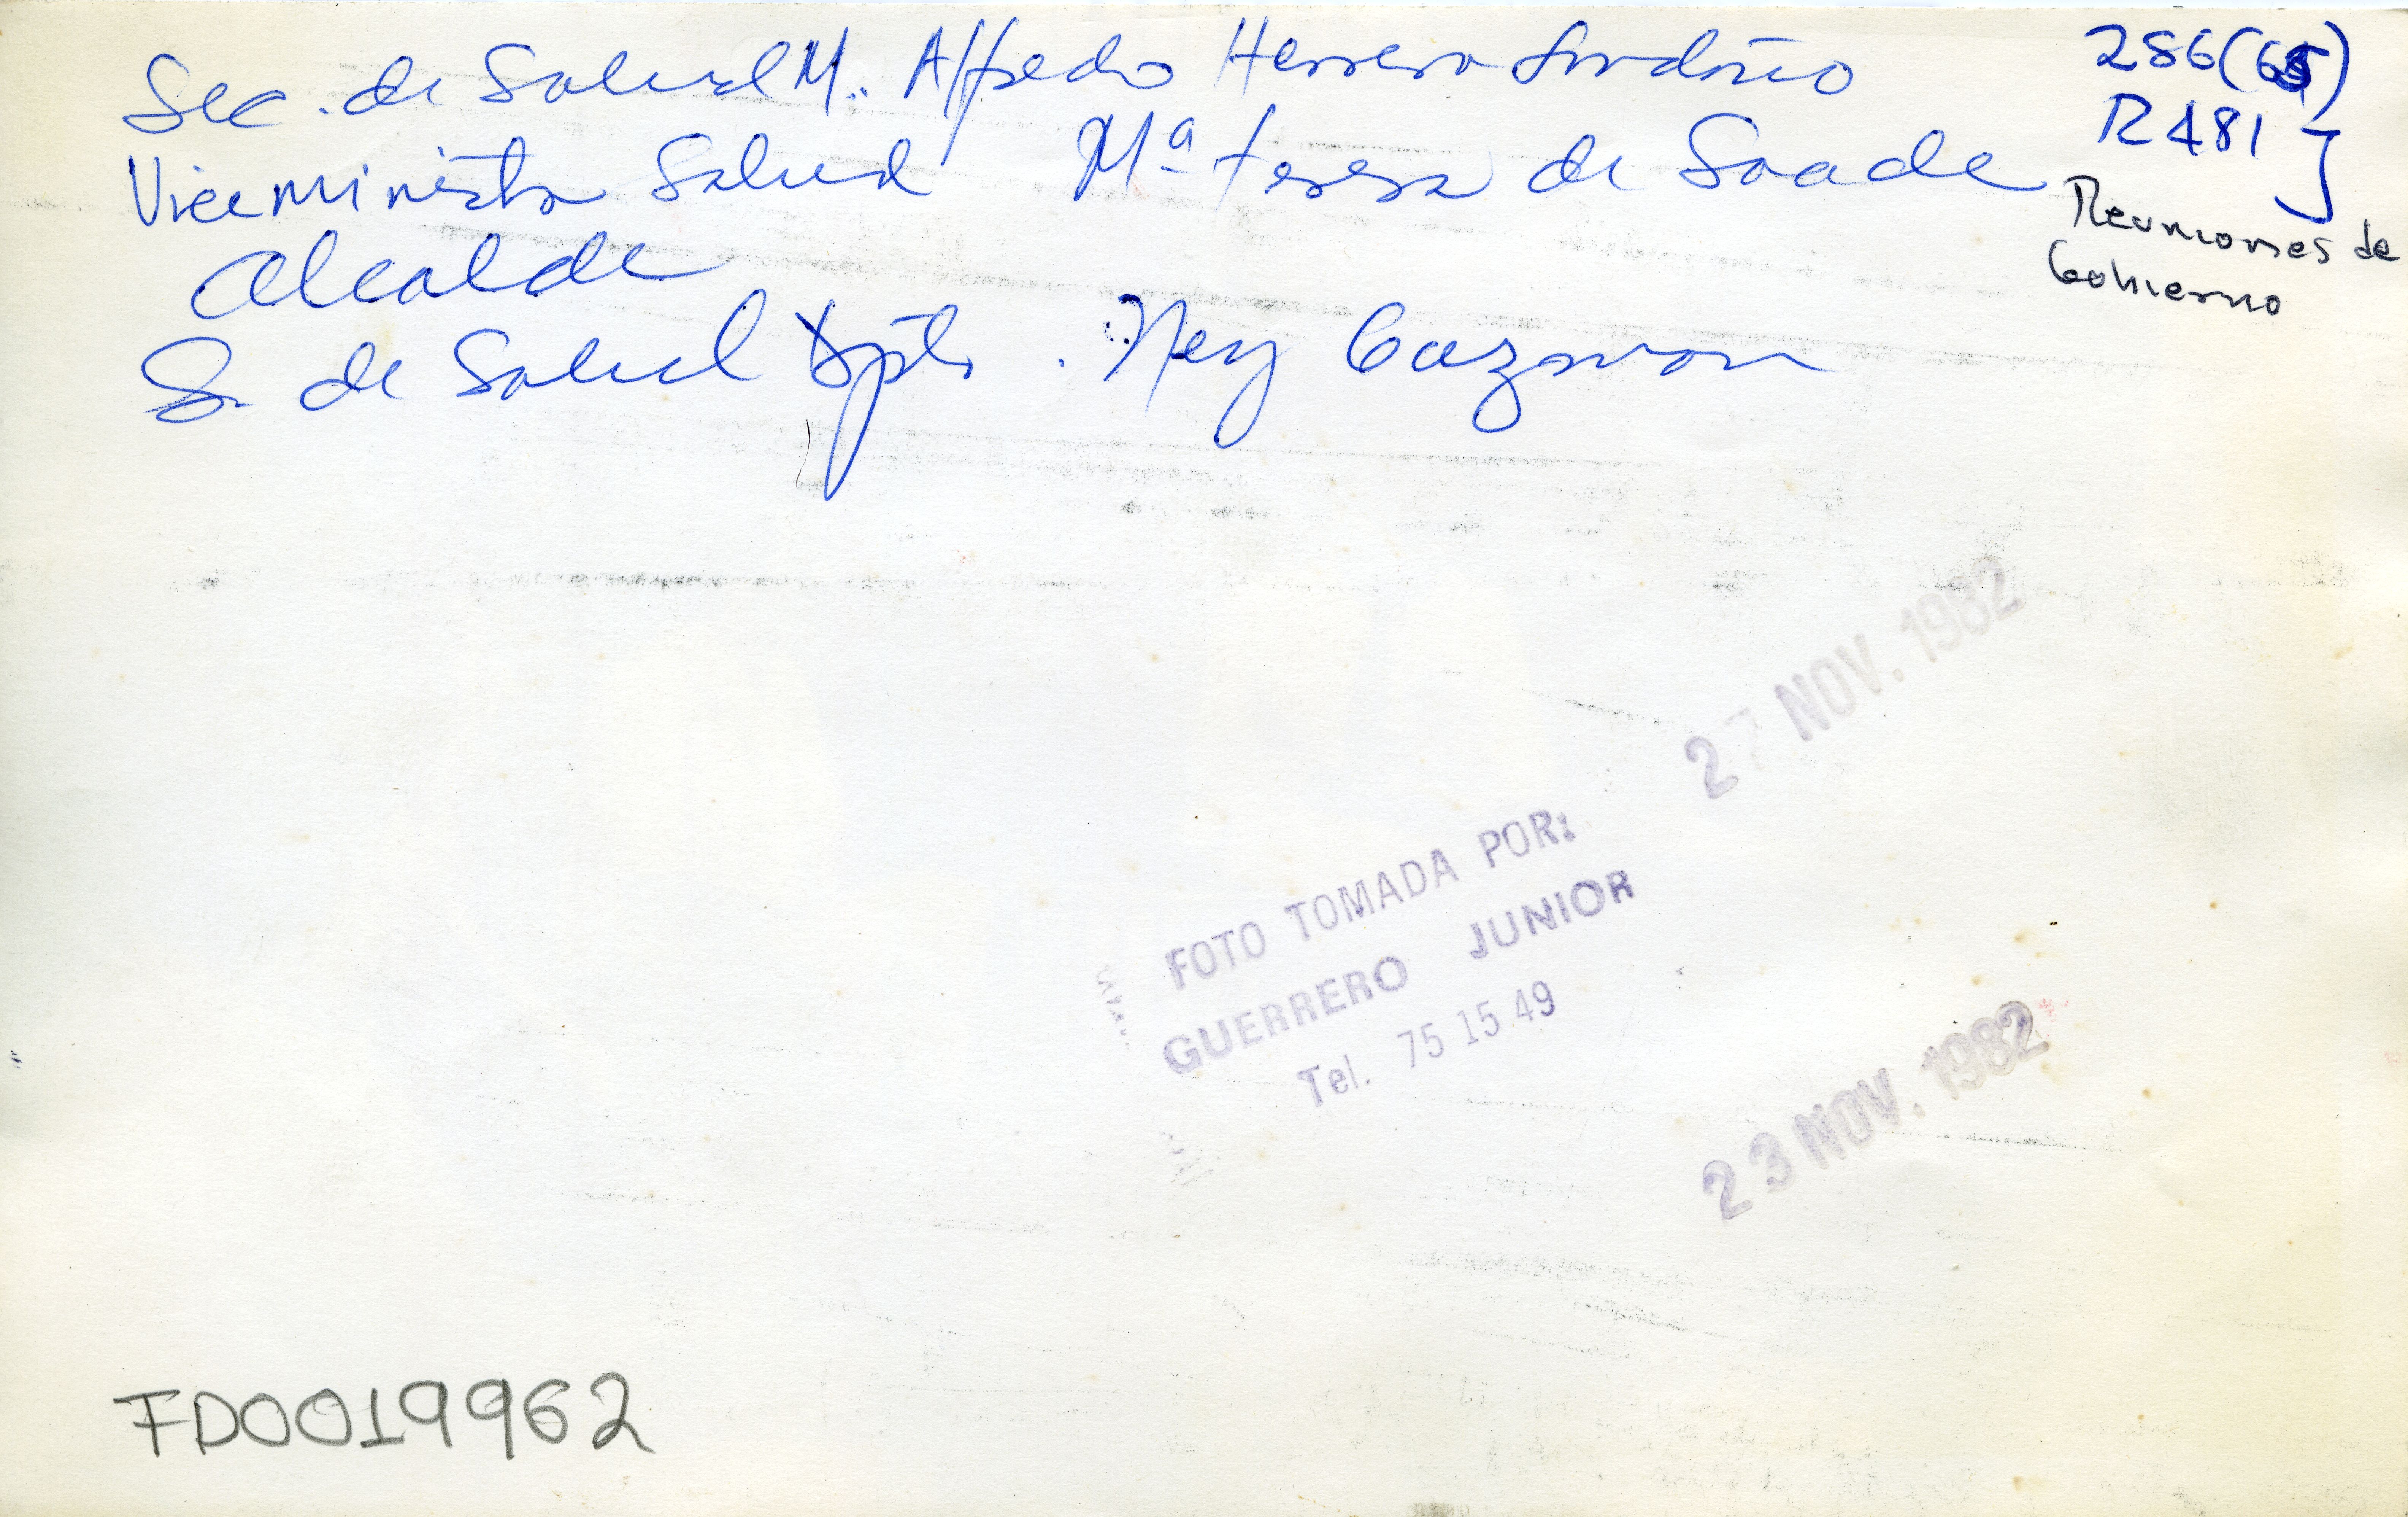 Sec. de Salud M. Alfredo Herrera Londoño
Viceministra Salud Mª teresa de Saade
Alcalde
S. de Salud Dpto. Ney Guzman
286(65)
R481
Reuniones de
Gobierno
27 NOV. 1982
FOTO TOMADA POR:
GUERRERO JUNIOR
Tel. 75 15 49
23 NOV. 1982
FD0019962